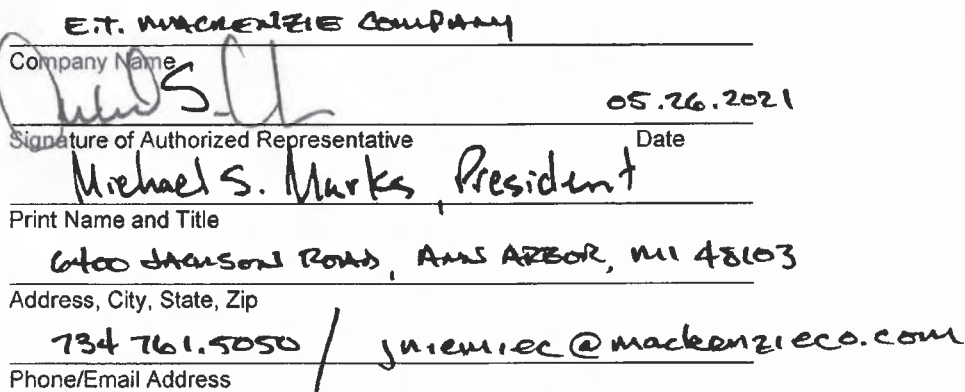 E.T. MACKENZIE COMPANY
Company Name
05.26.2021
Signature of Authorized Representative Date
Michael S. Marks, President
Print Name and Title
6400 JACKSON ROAD, ANN ARBOR, MI 48103
Address, City, State, Zip
734 761.5050 / jniemiec@mackenzieco.com
Phone/Email Address